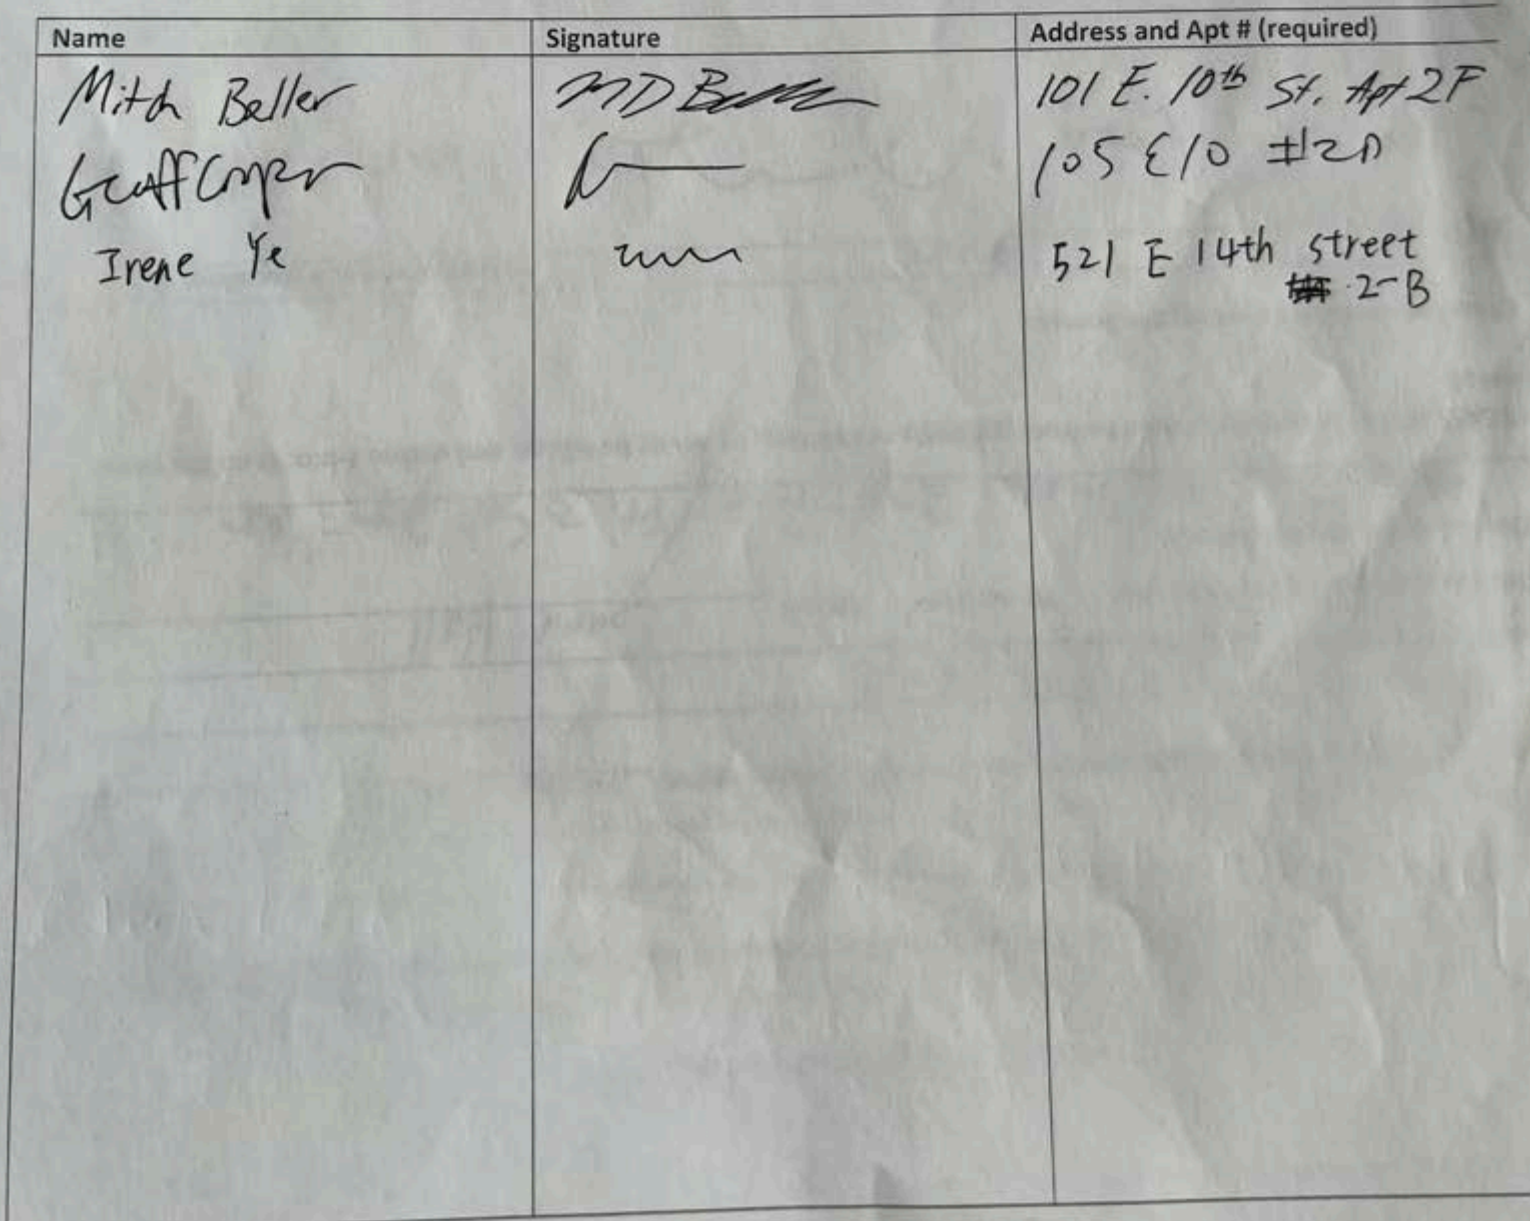 Name Signature Address and Apt # (required)
Mitch Beller MD Beller 101 E. 10th St. Apt 2F
Geoff 105 E 10 #2D
Irene Ye 521 E 14th street
2-B